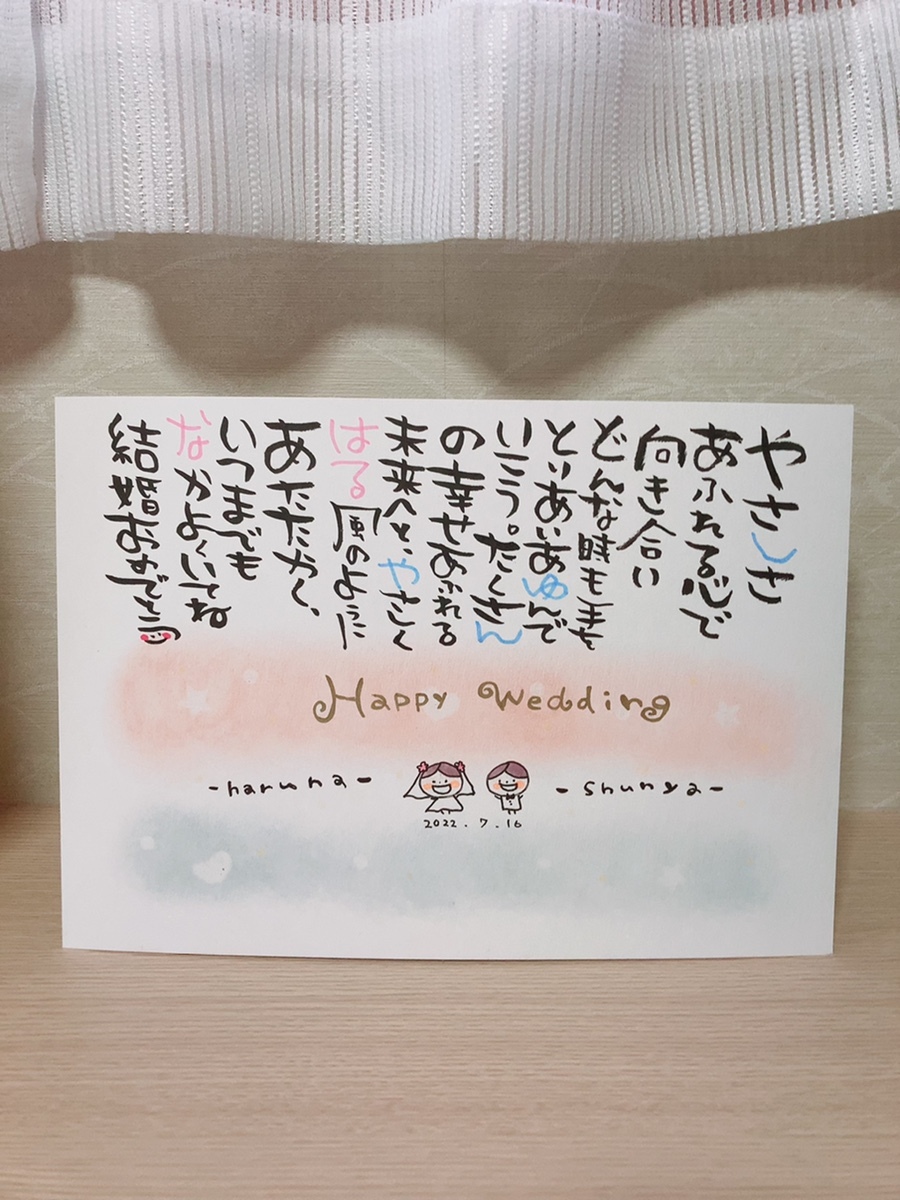 やさしさ
あふれる心で
向き合い
どんな時も手を
とりあいあゆんで
いこう。たくさん
の幸せあふれる
未来へと、やさしく
はる風のように
あたたかく、
いつまでも
なかよくいてね
結婚おめでとう
Happy Wedding
-haruna-
-shunya-
2022.7.16